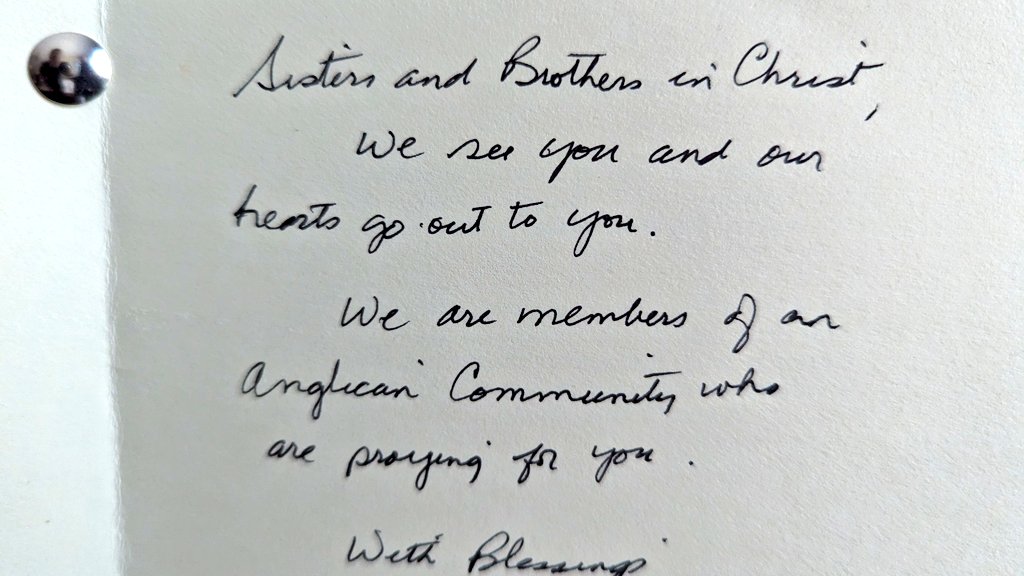 Sisters and Brothers in Christ,
We see you and our
hearts go out to you.
We are members of an
Anglican Community who
are praying for you.
With Blessings